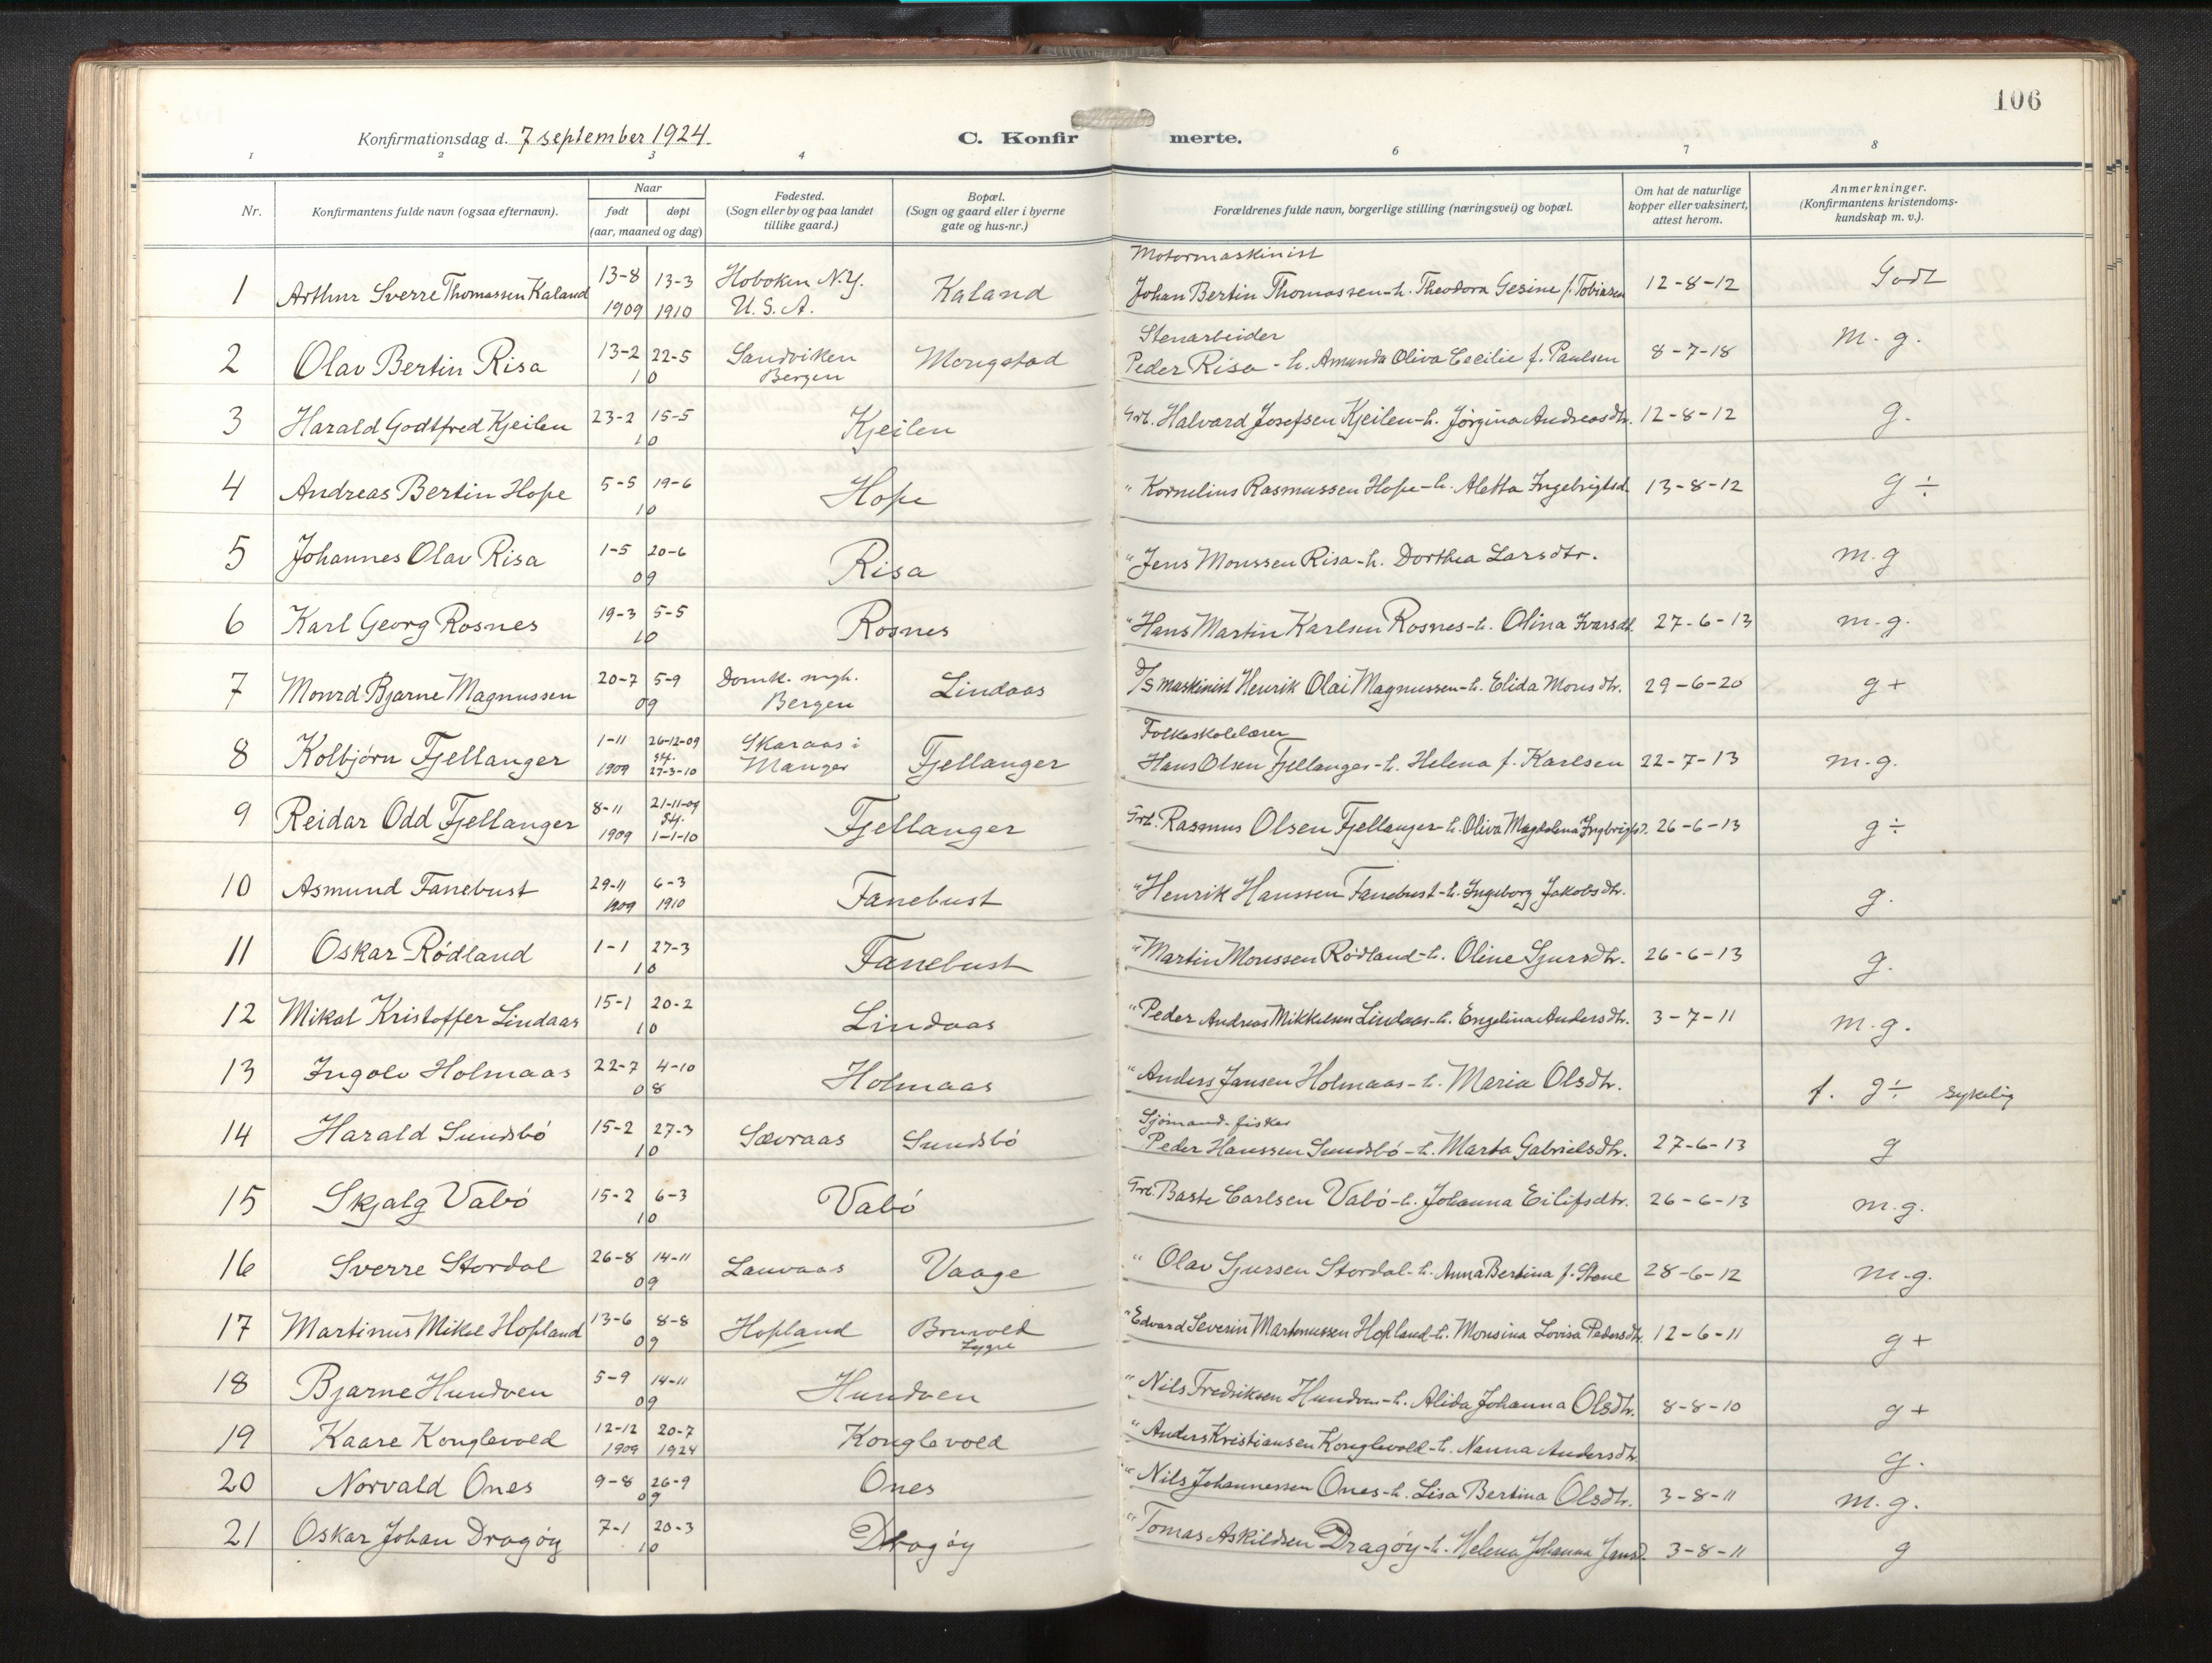 106
Konfirmationsdag d. 7 september 1924.
C. Konfirmerte.
1 2 3 4 6 7 8
Nr.
Konfirmantens fulde navn (ogsaa efternavn).
Naar
født
døpt
(aar, maaned og dag)
Fødested.
(Sogn eller by og paa landet
tillike gaard.)
Bopæl.
(Sogn og gaard eller i byerne
gate og hus-nr.)
Forældrenes fulde navn, borgerlige stilling (næringsvei) og bopæl.
Om hat de naturlige
kopper eller vaksinert,
attest herom.
Anmerkninger.
(Konfirmantens kristendoms-
kundskap m. v.).
Motormaskinist
1 Arthur Sverre Thomassen Kaland 13-8 13-3 Hoboken N.Y. Kaland Johan Bertin Thomassen-h. Theodora Gesine f. Tobiasen 12-8-12 Godt
1909 1910 U.S.A.
Stenarbeider
2 Olav Bertin Risa 13-2 22-5 Sandviken Mongstad Peder Risa - h. Amunda Oliva Cecilie f. Paulsen 8-7-18 M. g.
10 Bergen
3 Harald Godtfred Kjeilen 23-2 15-5 Kjeilen Grb. Halvard Josefsen Kjeilen-h. Jørgina Andreasdtr. 12-8-12 g.
10
4 Andreas Bertin Hope 5-5 19-6 Hope " Kornelius Rasmussen Hope-h. Aletta Ingebrigtsd. 13-8-12 g ÷
10
5 Johannes Olav Risa 1-5 20-6 Risa " Jens Monssen Risa-h. Dorthea Larsdtr. m.g
09
6 Karl Georg Rosnes 19-3 5-5 Rosnes " Hans Martin Karlsen Rosnes-h. Olina Ivarsdt. 27-6-13 m.g.
10
7 Monrd Bjarne Magnussen 20-7 5-9 Domk. mgh. Lindaas D/S maskinist Henrik Olai Magnussen-h. Elida Monsdtr. 29-6-20 g +
09 Bergen
Folkeskolelærer
8 Kolbjørn Fjellanger 1-11 26-12-09 Skaraas i Fjellanger Hans Olsen Fjellanger-h. Helena f. Karlsen 22-7-13 m.g.
1909 stf. 27-3-10 Manger
9 Reidar Odd Fjellanger 8-11 21-11-09 Fjellanger Grb. Rasmus Olsen Fjellanger-h. Oliva Magdalena Ingbrigtsd. 26-6-13 g ÷
1909 stf. 1-1-10
10 Asmund Fanebust 29-11 6-3 Fanebust " Henrik Hanssen Fanebust-h. Ingeborg Jakobsdtr. g.
1909 1910
11 Oskar Rødland 1-1 27-3 Fanebust " Martin Monssen Rødland-h. Oline Sjursdtr. 26-6-13 g.
10
12 Mikal Kristoffer Lindaas 15-1 20-2 Lindaas " Peder Andreas Mikkelsen Lindaas-h. Engelina Andersdtr. 3-7-11 m.g.
10
13 Ingolv Holmaas 22-7 4-10 Holmaas " Anders Jansen Holmaas-h. Maria Olsdtr. f. g÷ sykelig
08
Sjømand-fisker
14 Harald Sundsbø 15-2 27-3 Sævraas Sundsbø Peder Hanssen Sundsbø-h. Marta Gabrielsdtr. 27-6-13 g
10
15 Skjalg Vabø 15-2 6-3 Vabø Grb. Baste Carlsen Vabø-h. Johanna Eilifsdtr. 26-6-13 m.g.
10
16 Sverre Stordal 26-8 14-11 Lauvaas Vaage " Olav Sjursen Stordal-h. Anna Bertina f. Stene 28-6-12 m.g.
09
17 Martinus Mikal Hopland 13-6 8-8 Hopland Bruvold " Edvard Severin Martinussen Hopland-h. Monsina Lovisa Pedersdtr. 12-6-11 g +
09 Lygre
18 Bjarne Hundven 5-9 14-11 Hundven " Nils Fredriksen Hundven-h. Alida Johanna Olsdtr. 8-8-10 g +
09
19 Kaare Konglevold 12-12 20-7 Konglevold " Anders Kristiansen Konglevold-h. Nanna Andersdtr. g.
1909 1924
20 Norvald Ones 9-8 26-9 Ones " Nils Johannessen Ones-h. Lisa Bertina Olsdtr. 3-8-11 m.g.
09
21 Oskar Johan Dragøy 7-1 20-3 Dragøy " Tomas Askildsen Dragøy-h. Helena Johanna Jansd. 3-8-11 g
10